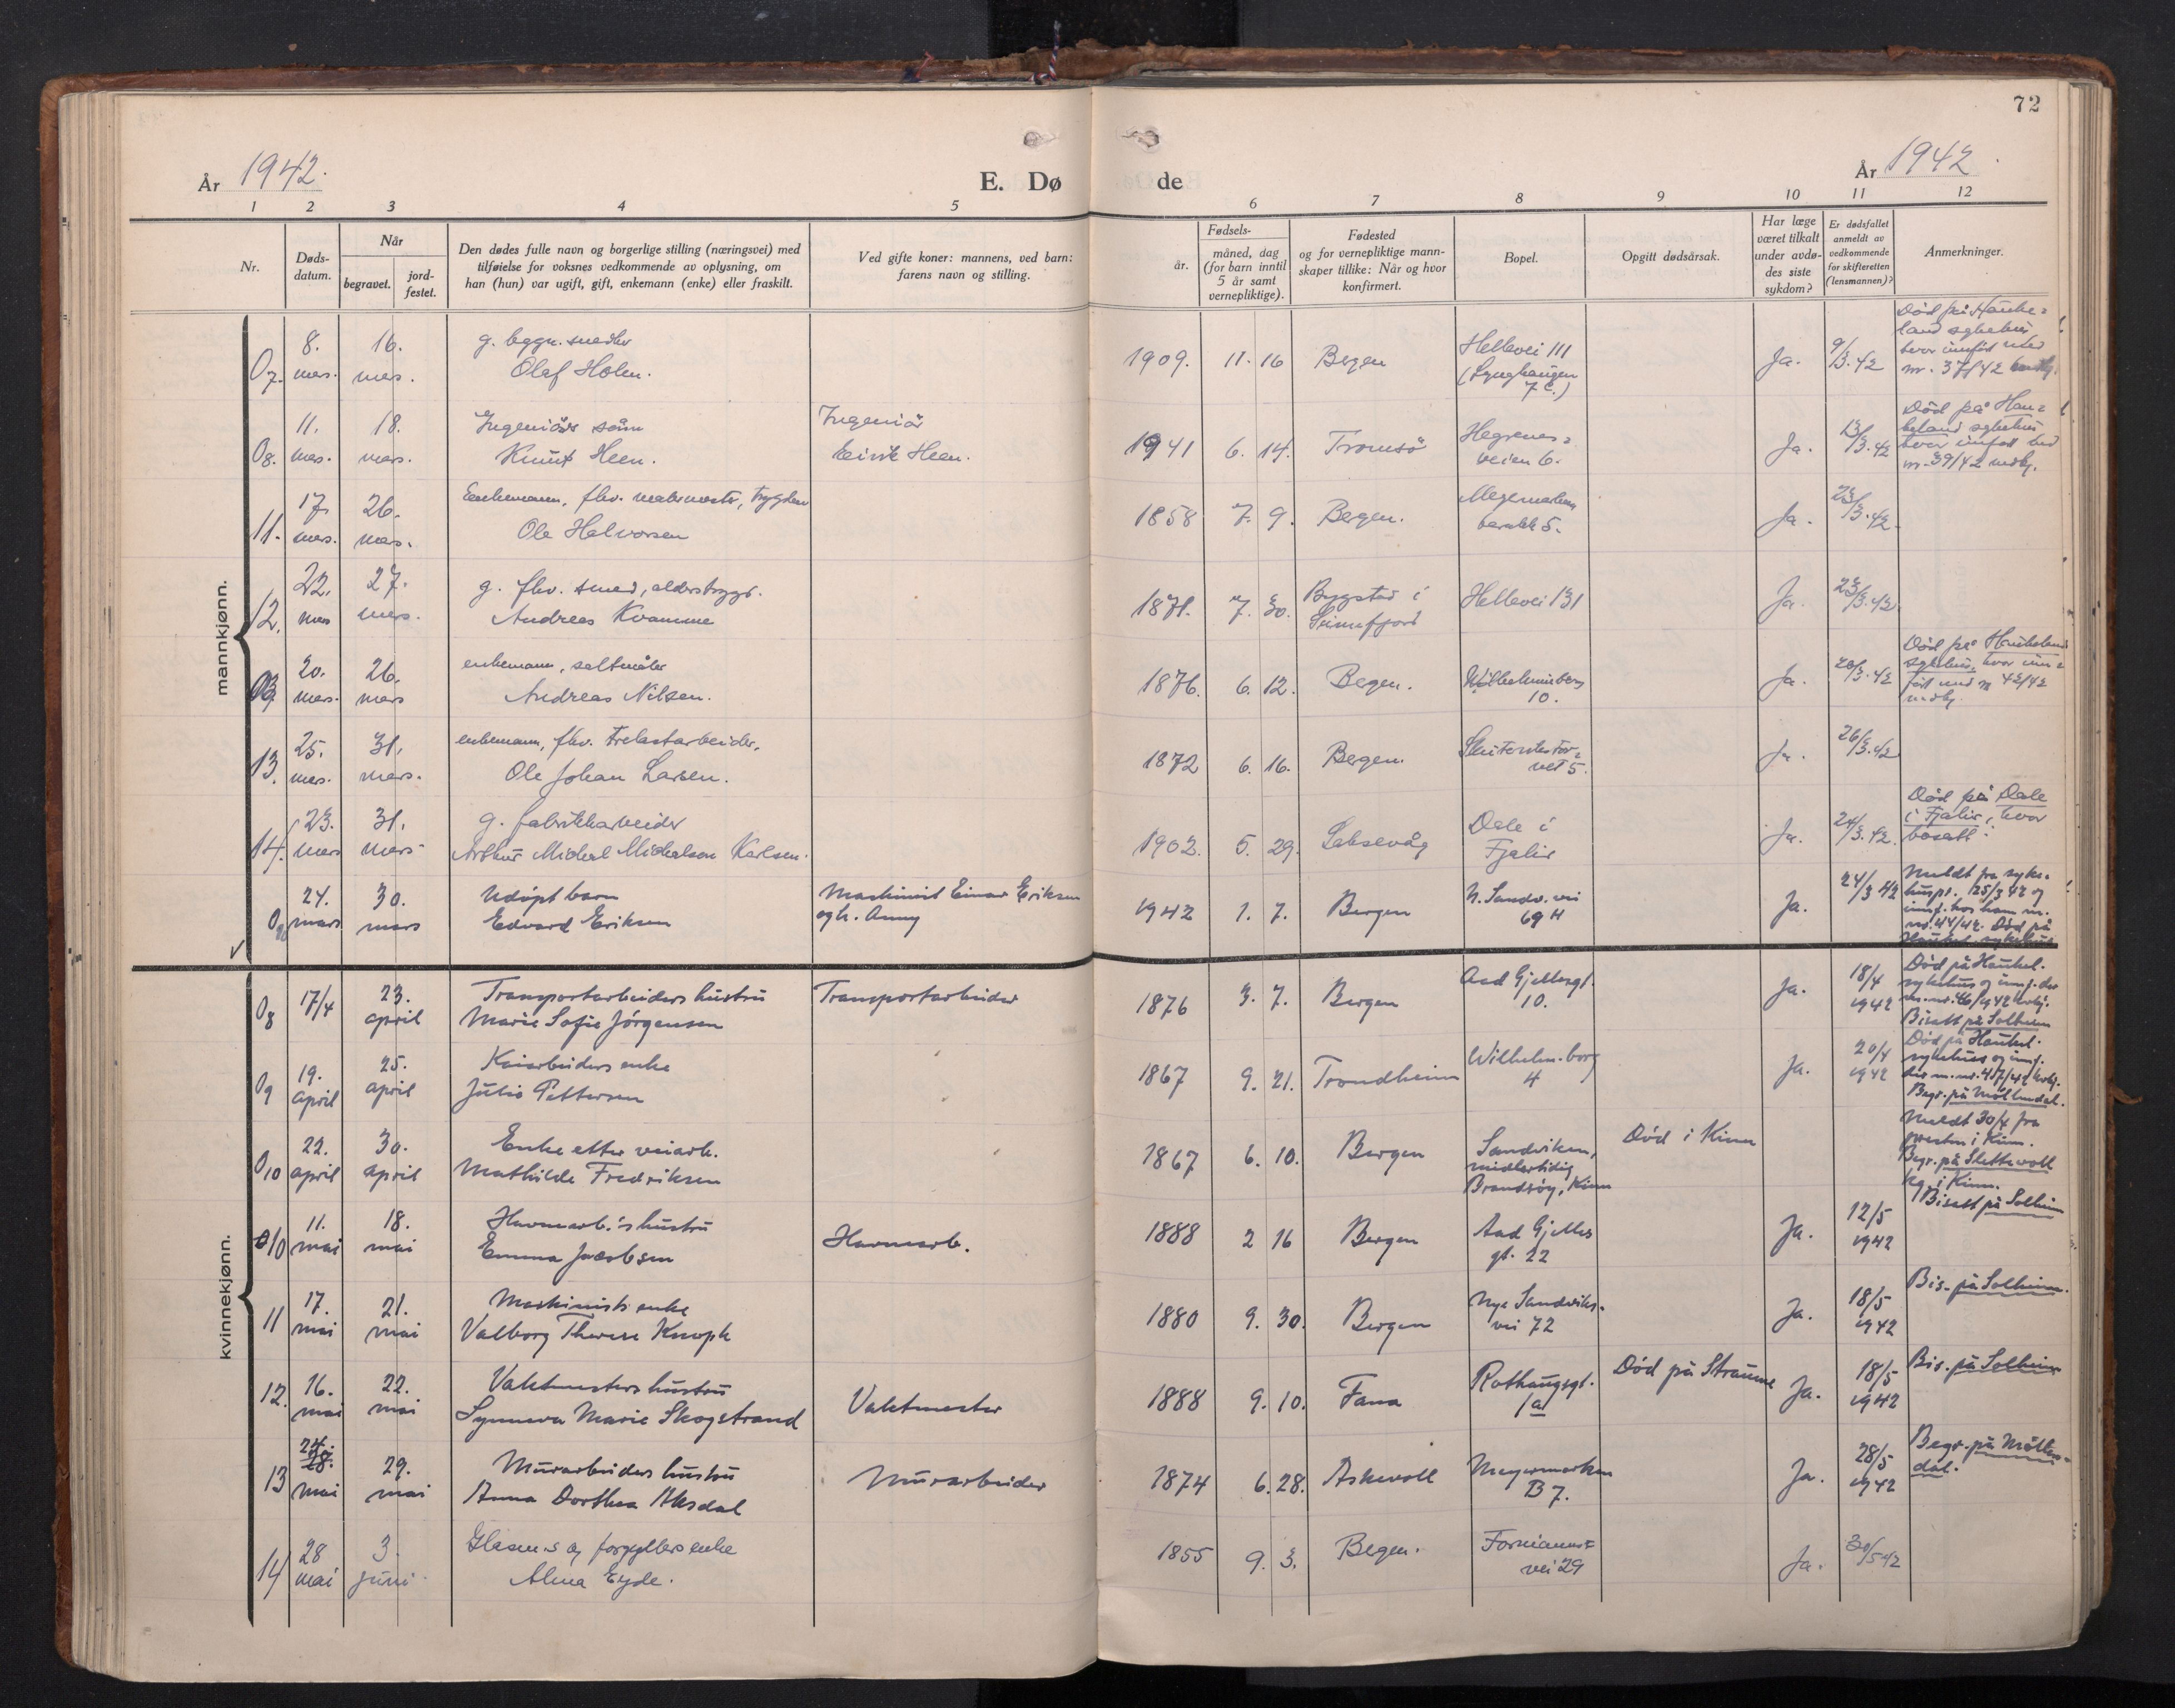 72
År 1942.
E. Dø de
År 1942.
1 2 3 4 5 6 7 8 9 10 11 12
Nr.
Døds-
datum.
Når
begravet.
jord-
festet.
Den dødes fulle navn og borgerlige stilling (næringsvei) med
tilføielse for voksnes vedkommende av oplysning, om
han (hun) var ugift, gift, enkemann (enke) eller fraskilt.
Ved gifte koner: mannens, ved barn:
farens navn og stilling.
Fødsels-
år.
måned, dag
(for barn inntil
5 år samt
vernepliktige).
Fødested
og for vernepliktige mann-
skaper tillike: Når og hvor
konfirmert.
Bopel.
Opgitt dødsårsak.
Har læge
været tilkalt
under avdø-
des siste
sykdom?
Er dødsfallet
anmeldt av
vedkommende
for skifteretten
(lensmannen)?
Anmerkninger.
mannkjønn.
8. 16. g.
07. mars. mars. Olaf Holen. 1909. 11. 16 Bergen Hellevei 111 Ja. 9/3.42
Død på Hauke=
land sykehus
hvor innført med
nr. 37/42
11. 18. Ingeniørs sønn Ingeniør
08. mars. mars. Knut Heen. Eirik Heen. 1941 6. 14. Tromsø Hegrenes=
veien 6. Ja. 13/3.42
Død på Hau=
keland sykehus
hvor innført med
nr. 39/42
17. 26. Enkemann, fhv. malermester,
11. mars. mars. Ole Halvorsen 1858 7. 9. Bergen.
barakk 5. Ja. 23/3.42.
22. 27. g. fhv. smed, alderstrygd.
12. mars mars. Andreas Kvamme 1871. 7. 30. Bygstad i
Hellevei 131 Ja. 23/3.42
20. 26. enkemann,
mars. mars Andreas Nilsen. 1876. 6. 12. Bergen.
10. Ja. 20/3.42
Død på Haukeland
sykehus, hvor inn=
ført med nr 42/42
25. 31. enkemann, fhv. Trelastarbeider,
13. mars. mars. Ole Johan Larsen. 1872 6. 16. Bergen.
vet 5. Ja. 26/3.42
23. 31. g. fabrikkarbeider
14. mars mars Arthur Michal Michalsen Karlsen. 1902. 5. 29. Laksevåg Dale i
Fjaler Ja. 24/3.42.
Død på Dale
i Fjaler, hvor
bosatt.
24. 30. Udøpt barn Maskinist Einar Eriksen
mars mars Edvard Eriksen og h. Anny 1942 1. 7. Bergen N. Sandv. vei
69 H Ja. 24/3 42
Meldt fra syke-
huspr. 25/3 42 og
innf. hos ham m.
nr. 44/42. Død på
Haukel. sykehus
kvinnekjønn.
08 17/4 23. Transportarbeiders hustru Transportarbeider
april Marie Sofie Jørgensen 1876 3. 7. Bergen Aad Gjellesgt.
10. Ja. 18/4
1942
Død på Haukel.
sykehus og innf. der
m. nr. 46/1942
Bisatt på Solheim
19. 25. Kaiarbeiders enke
09 april april Julie Pettersen 1867 9. 21. Trondheim Wilhelm.borg
4 Ja. 20/4
1942
Død på Haukel.
sykehus og innf.
der m. nr. 47/42
Begr. på Møllendal.
22. 30. Enke etter veiarb.
010 april april Mathilde Fredriksen 1867 6. 10. Bergen Sandviken,
midlertidig
Brandsøy, Kinn Død i Kinn
Meldt 30/4 fra
presten i Kinn.
Begr. på
i Kinn.
11. 18. Havnearb.'s hustru
010 mai mai Emma Jacobsen Havnearb. 1888 2 16 Bergen Aad Gjelles
gt. 22 Ja. 12/5
1942 Bisatt på Solheim
17. 21. Maskinists enke
11 mai mai Valborg Therese Knoph 1880 9. 30. Bergen Nye Sandviks-
vei 72 Ja. 18/5
1942 Bis. på Solheim.
16. 22. Vaktmesters hustru
12. mai mai Synneva Marie Skogstrand Vaktmester 1888 9. 10. Fana Rothaugsgt.
1a Død på Straume Ja. 18/5
1942 Bis. på Solheim
24.
28. 29. Murarbeiders hustru
13 mai mai Anna Dorthea Aksdal Murarbeider 1874 6. 28. Askevoll Meyermarken
B 7. Ja. 28/5
1942 Begr. på Møllen-
dal.
28 3. Glasm.s og forgyllers enke
14 mai juni Alma Eyde. 1855 9. 3. Bergen.
vei 29 Ja. 30/5 42